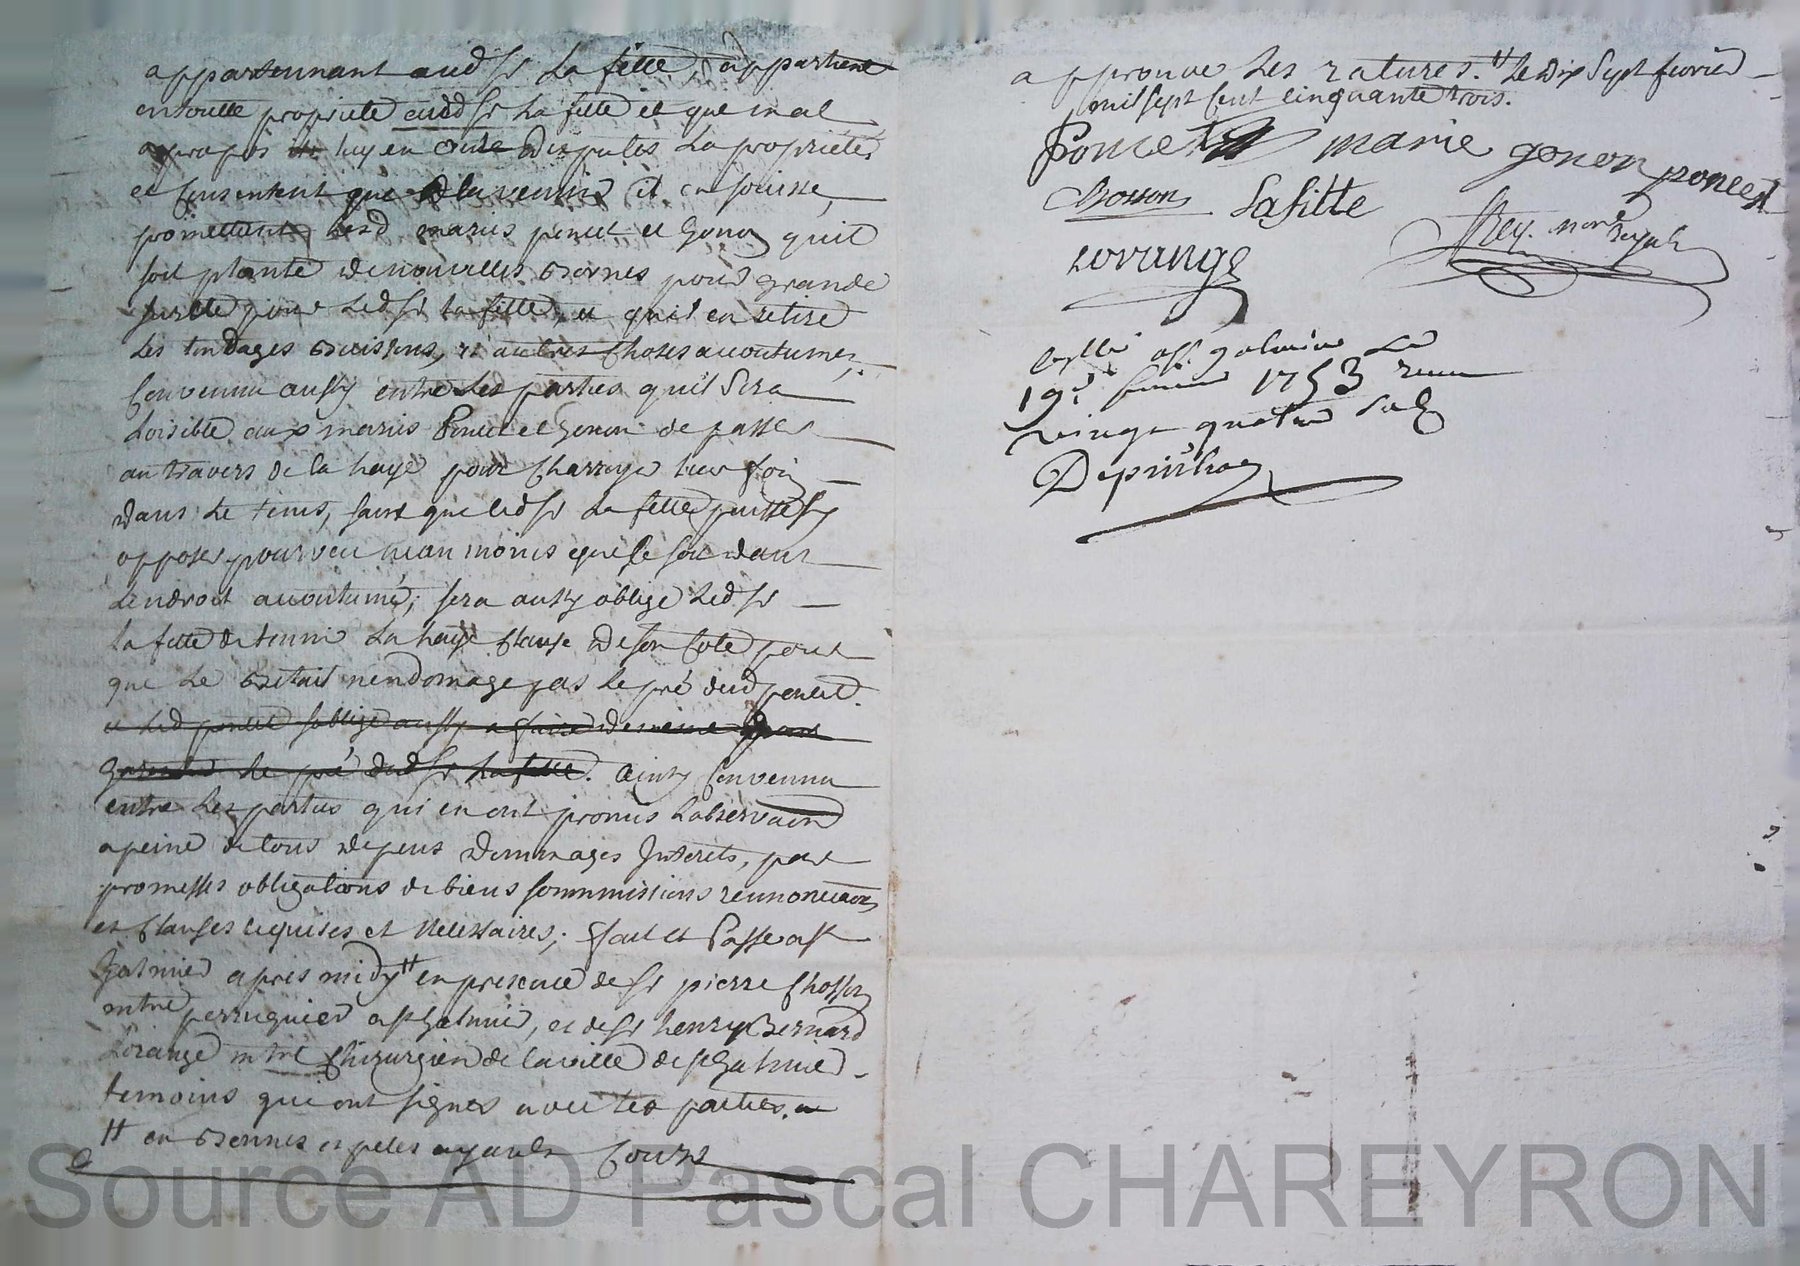 appartennant aud Sr La fitte, appartient
en toutte propriete audd Sr La fitte et que mal
apropos luy en disputés La propriété,
et Consentent que a Lavennir il en jouisse,
promettent Lesd mariés poncet et Gonon quil
soit planté de nouvelles Bornes pour grande
surette pour Led Sr La fitte, et quil en retire
Les tondages Buissons, et autres Choses accoutumés,
Convennu aussy entre Les parties quil sera
Loisible aux mariés Poncet et Gonon de passer
au travers de la haye pour Charroye leur foin
dans Le tems, sans que led Sr La fitte puisse sy
opposer pourveu neanmoins que se soit dans
Lendroit accoutumé; sera aussy obligé Led Sr
La fitte de tennir La haye Clause de son Coté pour
que Le Betail nendomage pas Le pré dud poncet.
et Led poncet soblige aussy a faire de meme pour
Le pré dud Sr La fitte. Ainsy Convennu
entre Les parties qui en ont promis Lobservaon
a peine de tous depens Dommages Interets, par
promesses obligations de biens sommmissions rennonciaons
et Clauses requises et Necessaires; fait et Passé a St
Galmier apres midy # en presence de Sr pierre Chosson
mtre perruquier a St Galmier, et de Sr henry Bernard
Lorange mtre Chirurgien de la ville de St Galmier
temoins qui ont signés avec Les parties. et
# en Bonnes especes ayants Cours
approuvé Les ratures. # Le dix sept fevrier
mil sept Cent Cinquante trois.
Poncet marie gonon poncet
Chosson Lafitte
Rey. nore Royal
Lorange
Collé a St galmier Le
19e fevrier 1753 recu
vingt quatre sols
Source AD Pascal CHAREYRON